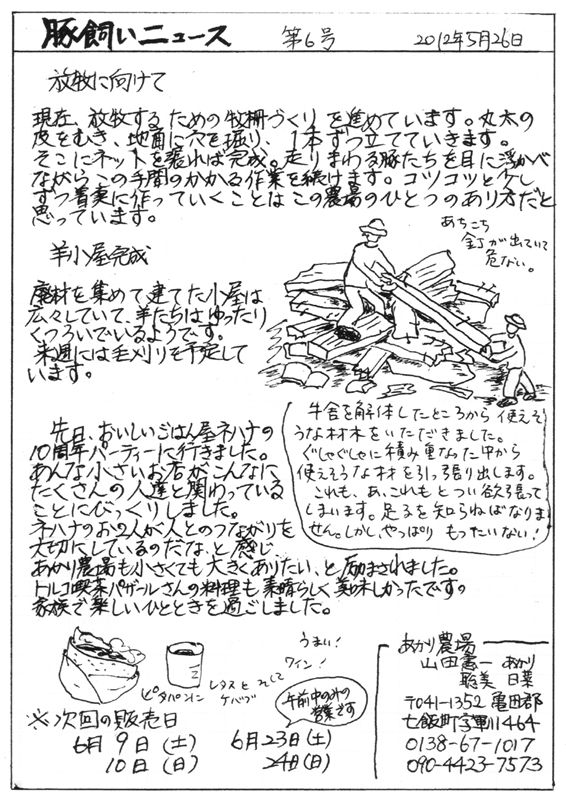 豚飼いニュース 第6号 2012年5月26日
放牧に向けて
現在、放牧するための牧柵づくりを進めています。丸太の
皮をむき、地面に穴を掘り、1本ずつ立てていきます。
そこにネットを張れば完成。走りまわる豚たちを目に浮かべ
ながらこの手間のかかる作業を続けます。コツコツと少し
ずつ着実に作っていくことはこの農場のひとつのあり方だと
思っています。
あちこち
釘が出ていて
危ない。
羊小屋完成
廃材を集めて建てた小屋は
広々していて、羊たちはゆったり
くつろいでいるようです。
来週には毛刈りを予定して
います。
牛舎を解体したところから使えそ
うな材木をいただきました。
ぐしゃぐしゃに積み重なった中から
使えそうな材を引っ張り出します。
これも、あ、これもとつい欲張って
しまいます。足るを知らねばなりま
せん。しかし、やっぱりもったいない!
先日、おいしいごはん屋ネハナの
10周年パーティーに行きました。
あんな小さいお店がこんなに
たくさんの人達と関わっている
ことにびっくりしました。
ネハナのおの人が人とのつながりを
大切にしているのだな、と感じ
あかり農場も小さくても大きくありたい、と励まされました。
トルコ喫茶パザールさんの料理も素晴らしく美味しかったです。
家族で楽しいひとときを過ごしました。
ピタパンin
レタスと
ケバブ
そして
うまい!
ワイン!
午前中のみの
営業です
※次回の販売日
6月9日(土) 6月23日(土)
10日(日) 24日(日)
あかり農場
山田憲一 あかり
聡美 日菜
〒041-1352 亀田郡
七飯町字軍川1464
0138-67-1017
090-4423-7573